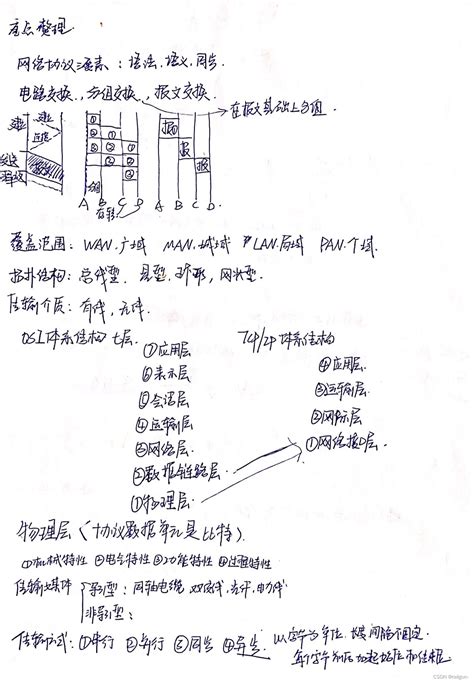 重点整理
网络协议三要素：语法，语义，同步。
电路交换，分组交换，报文交换。
在报文基础上分组
建立
连接
释放
① ② ③
报
报
报
分组
A B C D
存转
A B C D
覆盖范围：WAN.广域 MAN.城域 LAN.局域 PAN.个域.
拓扑结构：总线型，星型，环形，网状型.
传输介质：有线，无线.
OSI体系结构 七层. TCP/IP体系结构
⑦应用层 ④应用层
⑥表示层 ③运输层
⑤会话层 ②网际层
④运输层 ①网络接口层
③网络层
②数据链路层
①物理层
物理层（协议数据单元是比特）
①机械特性 ②电气特性 ③功能特性 ④过程特性
传输媒体 导引型：同轴电缆 双绞线，光纤，电力线
非导引型：
传输方式：①串行 ②并行 ③同步 ④异步. 以字节为单位，字节间隔不固定，
每个字节前后加起始位和结束位.
CSDN @